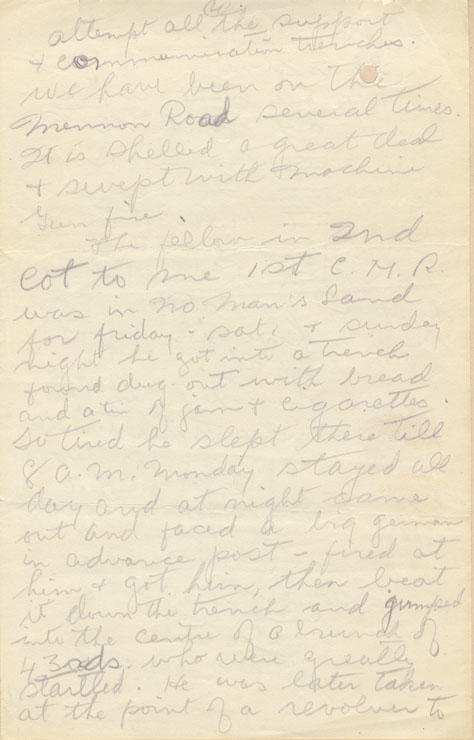 attempt all the support
& communication trenches.
We have been on the
Mennon Road several times.
It is shelled a great deal
& swept with machine
Gun fire
The fellow in 2nd
Cot to me 1st C. M. R.
was in No Man's Land
for friday - sat. & sunday
night he got into a trench
found dug out with bread
and a tin of jam & cigarettes.
So tired he slept there till
8 a.m. Monday stayed all
day and at night came
out and faced a big german
in advance post - fired at
him & got him, then beat
it down the trench and jumped
into the centre of a bunch of
43rds. who were greatly
startled. He was later taken
at the point of a revolver to